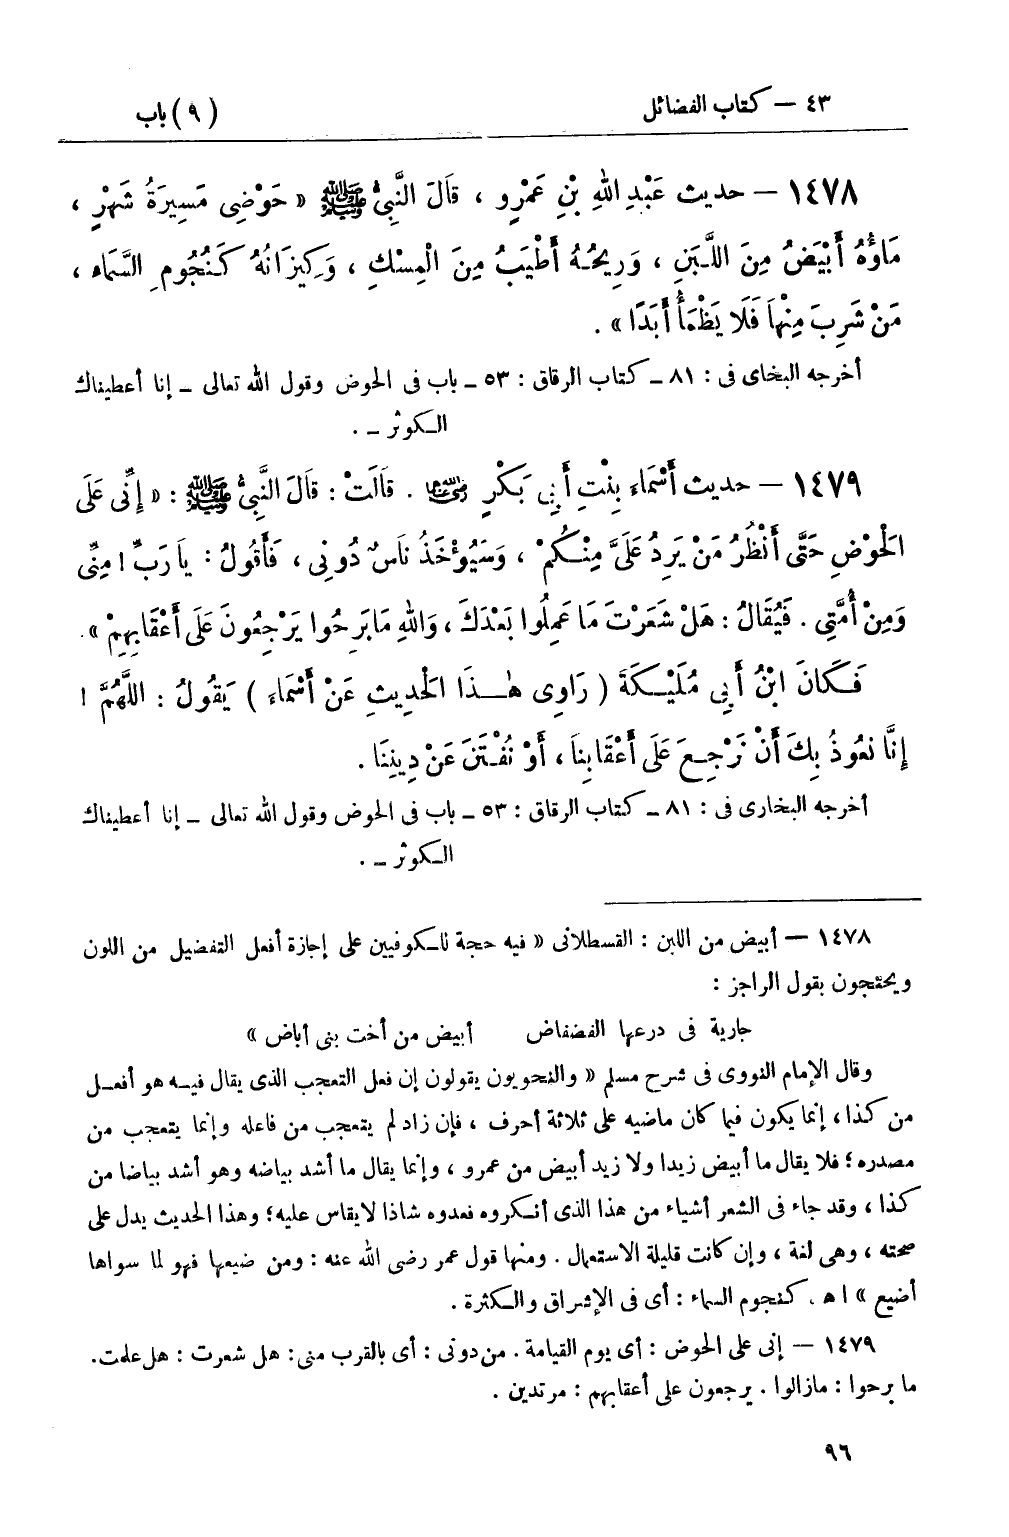 ٤٣ — كتاب الفضائل (٩) باب
١٤٧٨ — حديث عَبْدِ اللهِ بْنِ عَمْرٍو ، قَالَ النَّبِيُّ ﷺ « حَوْضِى مَسِيرَةُ شَهْرٍ ،
مَاؤُهُ أَبْيَضُ مِنَ اللَّبَنِ ، وَرِيحُهُ أَطْيَبُ مِنَ الْمِسْكِ ، وَكِيزَانُهُ كَنُجُومِ السَّمَاء ،
مَنْ شَرِبَ مِنْهَا فَلَا يَظْمَأُ أَبَدًا » .
أخرجه البخاى فى : ٨١ ـ كتاب الرقاق : ٥٣ ـ باب فى الحوض وقول الله تعالى ـ إنا أعطيناك
الكوثر ـ .
١٤٧٩ — حديث أَسْمَاء بِنْتِ أَبِى بَكْرٍ رضي الله عنها . قَالَتْ : قَالَ النَّبِيُّ ﷺ : « إِنِّى عَلَى
الْحَوْضِ حَتَّى أَنْظُرُ مَنْ يَرِدُ عَلَىَّ مِنْكُمْ ، وَسَيُؤْخَذُ نَاسٌ دُونِى ، فَأَقُولُ : يَا رَبِّ ! مِنِّى
وَمِنْ أُمَّتِى . فَيُقَالُ : هَلْ شَعَرْتَ مَا عَمِلُوا بَعْدَكَ ، وَاللهِ مَا بَرِحُوا يَرْجِعُونَ عَلَى أَعْقَابِهِمْ » .
فَكَانَ ابْنُ أَبِى مُلَيْكَةَ ( رَاوِى هٰذَا الْحَدِيثِ عَنْ أَسْمَاء ) يَقُولُ : اللَّهُمَّ !
إِنَّا نَعُوذُ بِكَ أَنْ نَرْجِعَ عَلَى أَعْقَابِنَا ، أَوْ نُفْتَنَ عَنْ دِينِنَا .
أخرجه البخارى فى : ٨١ ـ كتاب الرقاق : ٥٣ ـ باب فى الحوض وقول الله تعالى ـ إنا أعطيناك
الكوثر ـ .
١٤٧٨ — أبيض من اللبن : القسطلانى « فيه حجة للكوفيين على إجازة أفعل التفضيل من اللون
ويحتجون بقول الراجز :
جارية فى درعها الفضفاض أبيض من أخت بنى أباض »
وقال الإمام النووى فى شرح مسلم « والنحويون يقولون إن فعل التعجب الذى يقال فيه هو أفعل
من كذا ، إنما يكون فيما كان ماضيه على ثلاثة أحرف ، فإن زاد لم يتعجب من فاعله وإنما يتعجب من
مصدره ؛ فلا يقال ما أبيض زيدا ولا زيد أبيض من عمرو ، وإنما يقال ما أشد بياضه وهو أشد بياضا من
كذا ، وقد جاء فى الشعر أشياء من هذا الذى أنكروه فعدوه شاذا لايقاس عليه ؛ وهذا الحديث يدل على
صحته ، وهى لغة ، وإن كانت قليلة الاستعمال . ومنها قول عمر رضى الله عنه : ومن ضيعها فهو لما سواها
أضيع » ا ه . كنجوم السماء : أى فى الإشراق والكثرة .
١٤٧٩ — إنى على الحوض : أى يوم القيامة . من دونى : أى بالقرب منى : هل شعرت : هل علمت .
ما برحوا : مازالوا . يرجعون على أعقابهم : مرتدين .
٩٦